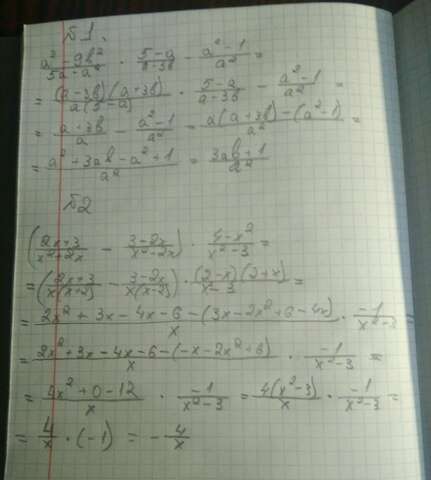 №1.
(a²-9b²)/(5a-a²) · (5-a)/(a-3b) - (a²-1)/a² =
= (a-3b)(a+3b)/(a(5-a)) · (5-a)/(a-3b) - (a²-1)/a² =
= (a+3b)/a - (a²-1)/a² = (a(a+3b)-(a²-1))/a² =
= (a²+3ab-a²+1)/a² = (3ab+1)/a²
№2
((2x+3)/(x²+2x) - (3-2x)/(x²-2x)) · (4-x²)/(x²-3) =
= ((2x+3)/(x(x+2)) - (3-2x)/(x(x-2))) · (2-x)(2+x)/(x-3) =
= (2x²+3x-4x-6-(3x-2x²+6-4x))/x · -1/(x²-3) =
= (2x²+3x-4x-6-(-x-2x²+6))/x · -1/(x²-3) =
= (4x²+0-12)/x · -1/(x²-3) = 4(x²-3)/x · -1/(x²-3) =
= 4/x · (-1) = - 4/x